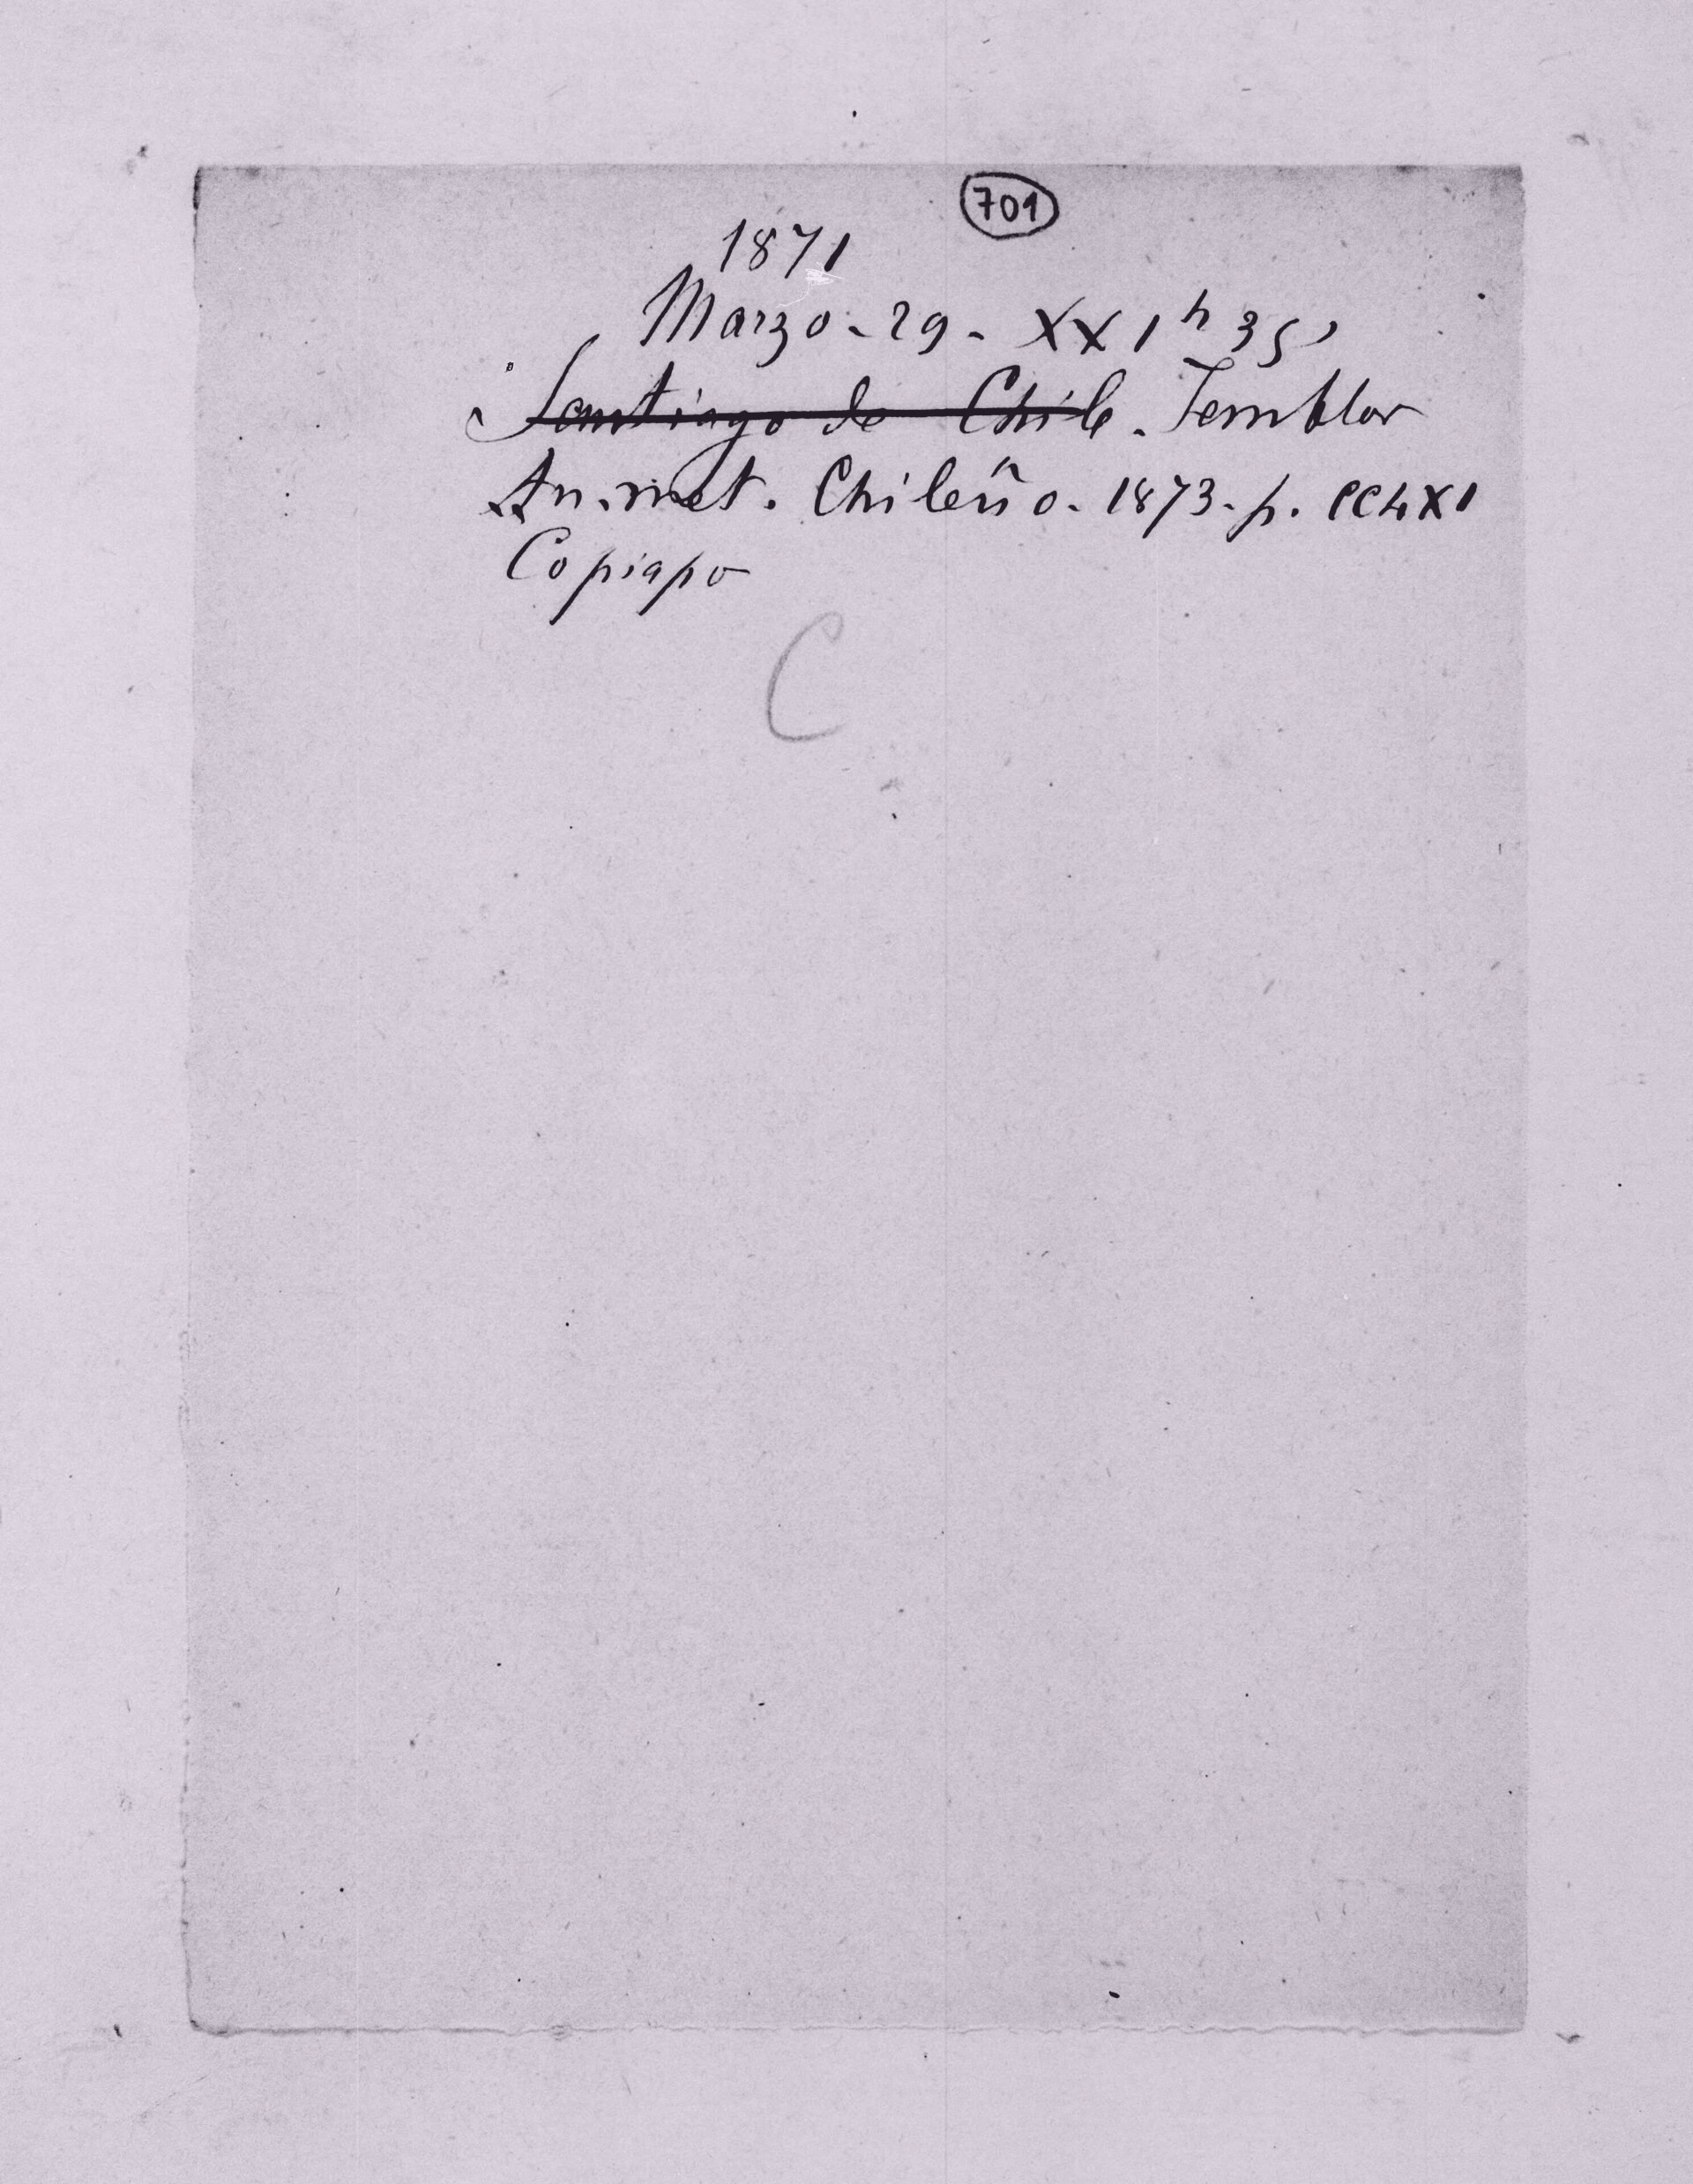 701
1871
Marzo - 29 - XX1h 35'
Santiago de Chile. Temblor
An. met. Chileño. 1873. p. CCLXI
Copiapo
C